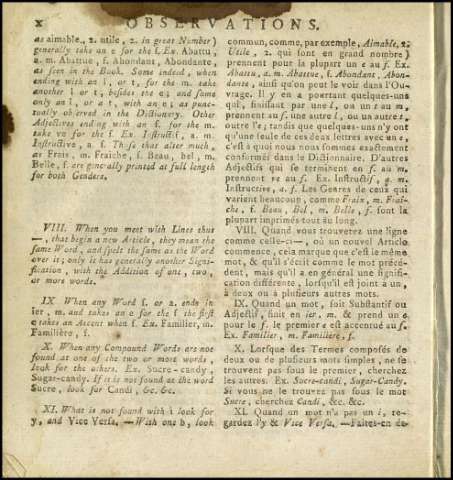 x OBSERVATIONS.
as aimable., 2. utile, 2. in great Number)
generally take an e for the f. Ex. Abattu,
a. m. Abattue, f. Abondant, Abondante,
as seen in the Book. Some indeed, when
ending with an l, or t, for the m. take
another l or t, besides the e; and some
only an l, or a t, with an e, as punc-
tually observed in the Dictionary. Other
Adjectives ending with an f. for the m.
take ve for the f. Ex. Instructif, a. m.
Instructive, a. f. Those that alter much,
as Frais, m. Fraiche, f. Beau, bel, m.
Belle, f. are generally printed at full length
for both Genders.
VIII. When you meet with Lines thus
—, that begin a new Article, they mean the
same Word, and spelt the same as the Word
over it; only it has generally another Signi-
fication, with the Addition of one, two,
or more words.
IX When any Word s. or a. ends in
ier, m. and takes an e for the f. the first
e takes an Accent when f. Ex. Familier, m.
Familière, f.
X. When any Compound Words are not
found at one of the two or more words,
look for the others. Ex. Sucre-candy,
Sugar-candy. If it is not found at the word
Sucre, look for Candi, &c. &c.
XI. What is not found with i look for
y, and Vice Versa, —With one b, look
commun, comme, par exemple, Aimable, 2.
Utile, 2. qui sont en grand nombre)
prennent pour la plupart un e au f. Ex.
Abattu, a. m. Abattue, f. Abondant, Abon-
dante, ainsi qu'on peut le voir dans l'Ou-
vrage. Il y en a pourtant quelques-uns
qui, finissant par une l, ou un t au m.
prennent au f. une autre l, ou un autre t,
outre l'e; tandis que quelques-uns n'y ont
qu'une seule de ces deux lettres avec un e,
c'est à quoi nous nous sommes exactement
conformés dans le Dictionnaire. D'autres
Adjectifs qui se terminent en f. au m.
prennent ve au f. Ex. Instructif, a. m.
Instructive, a. f. Les Genres de ceux qui
varient beaucoup, comme Frais, m. Fraî-
che, f. Beau, Bel, m. Belle, f. sont la
plupart imprimés tout au long.
VIII. Quand vous trouvetez une ligne
comme celle-ci—, où un nouvel Article
commence, cela marque que c'est le même
mot, & qu'il s'écrit comme le mot précé-
dent, mais qu'il a en général une signifi-
cation différente, lorsqu'il est joint à un,
à deux ou à plusieurs autres mots.
IX. Quand un mot, soit Substantif ou
Adjectif, finit en ier, m. & prend un e
pour le f. le premier e est accentué au f.
Ex. Familier, m. Familière, f.
X. Lorsque des Termes composés de
deux ou de plusieurs mots simples, ne se
trouvent pas sous le premier, cherchez
les autres. Ex. Sucre-candi, Sugar-Candy.
Si vous ne le trouvez pas sous le mot
Sucre, cherchez Candi, &c. &c.
XI. Quand un mot n'a pas un i, re-
gardez l'y & Vice Versa, —Faites-en de